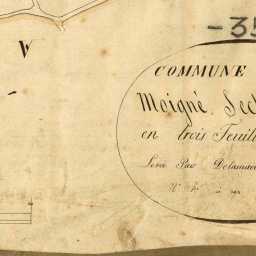 -35
V
COMMUNE
Moigné Sect
en trois Feuill
Levé Par Delamar